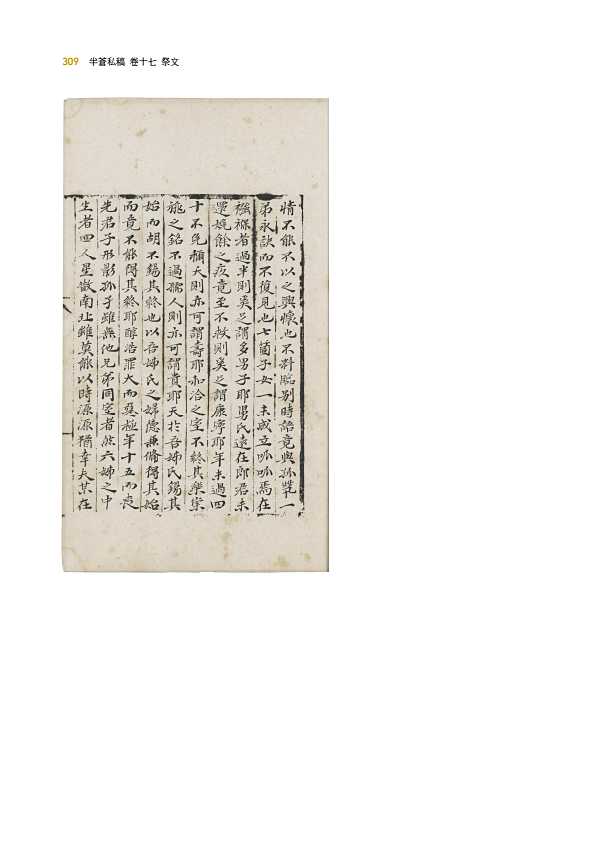 309 半蒼私稿 卷十七 祭文
情不能不以之興懷也不料臨別時語竟與孤煢一
弟永訣而不復見也七箇子女一未成立呱呱焉在
襁褓者過半則奚足謂多男子耶舅氏遠在郎君未
還娩餘之疾竟至不救則奚足謂康寧耶年未過四
十不免稱夭則亦可謂壽耶和洽之室不終其樂宗
旐之銘不過孺人則亦可謂貴耶天於吾姊氏錫其
始而胡不錫其終也以吾姊氏之婦德兼備得其始
而竟不能得其終耶醇浩罪大而喪極年十五而喪
先君子形影孤子雖無他兄弟同室者然六姊之中
生者四人星散南北雖莫能以時源源猶幸夫某在